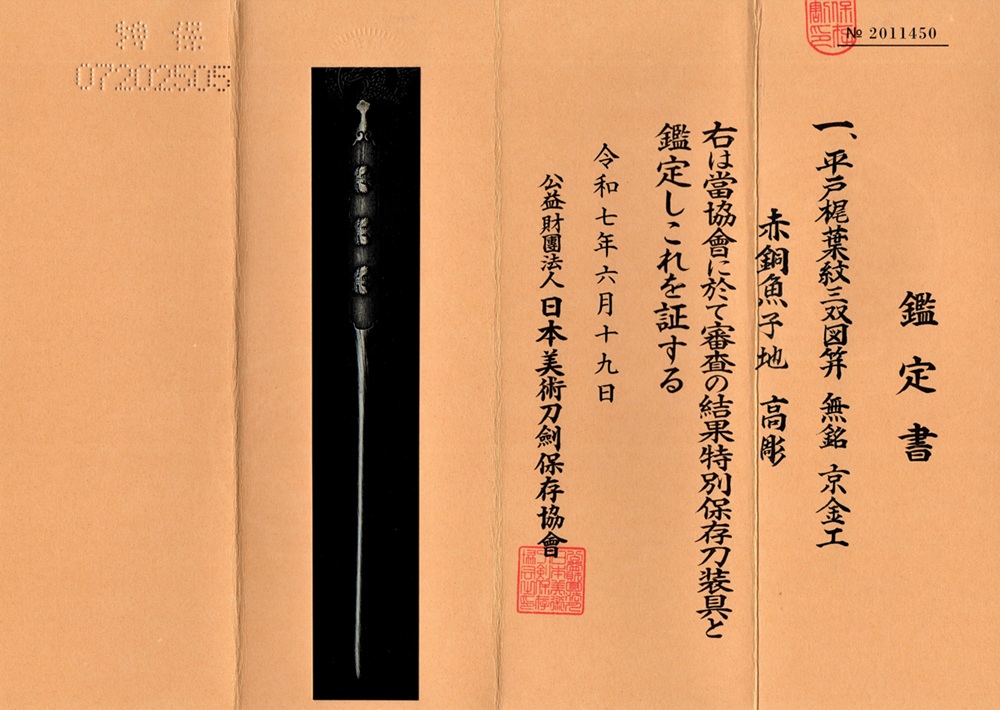 № 2011450
鑑定書
一、平戸梶葉紋三双図笄 無銘 京金工
赤銅魚子地 高彫
右は當協會に於て審査の結果特別保存刀装具と
鑑定しこれを証する
令和七年六月十九日
公益財團法人 日本美術刀劍保存協會
特保
07202505